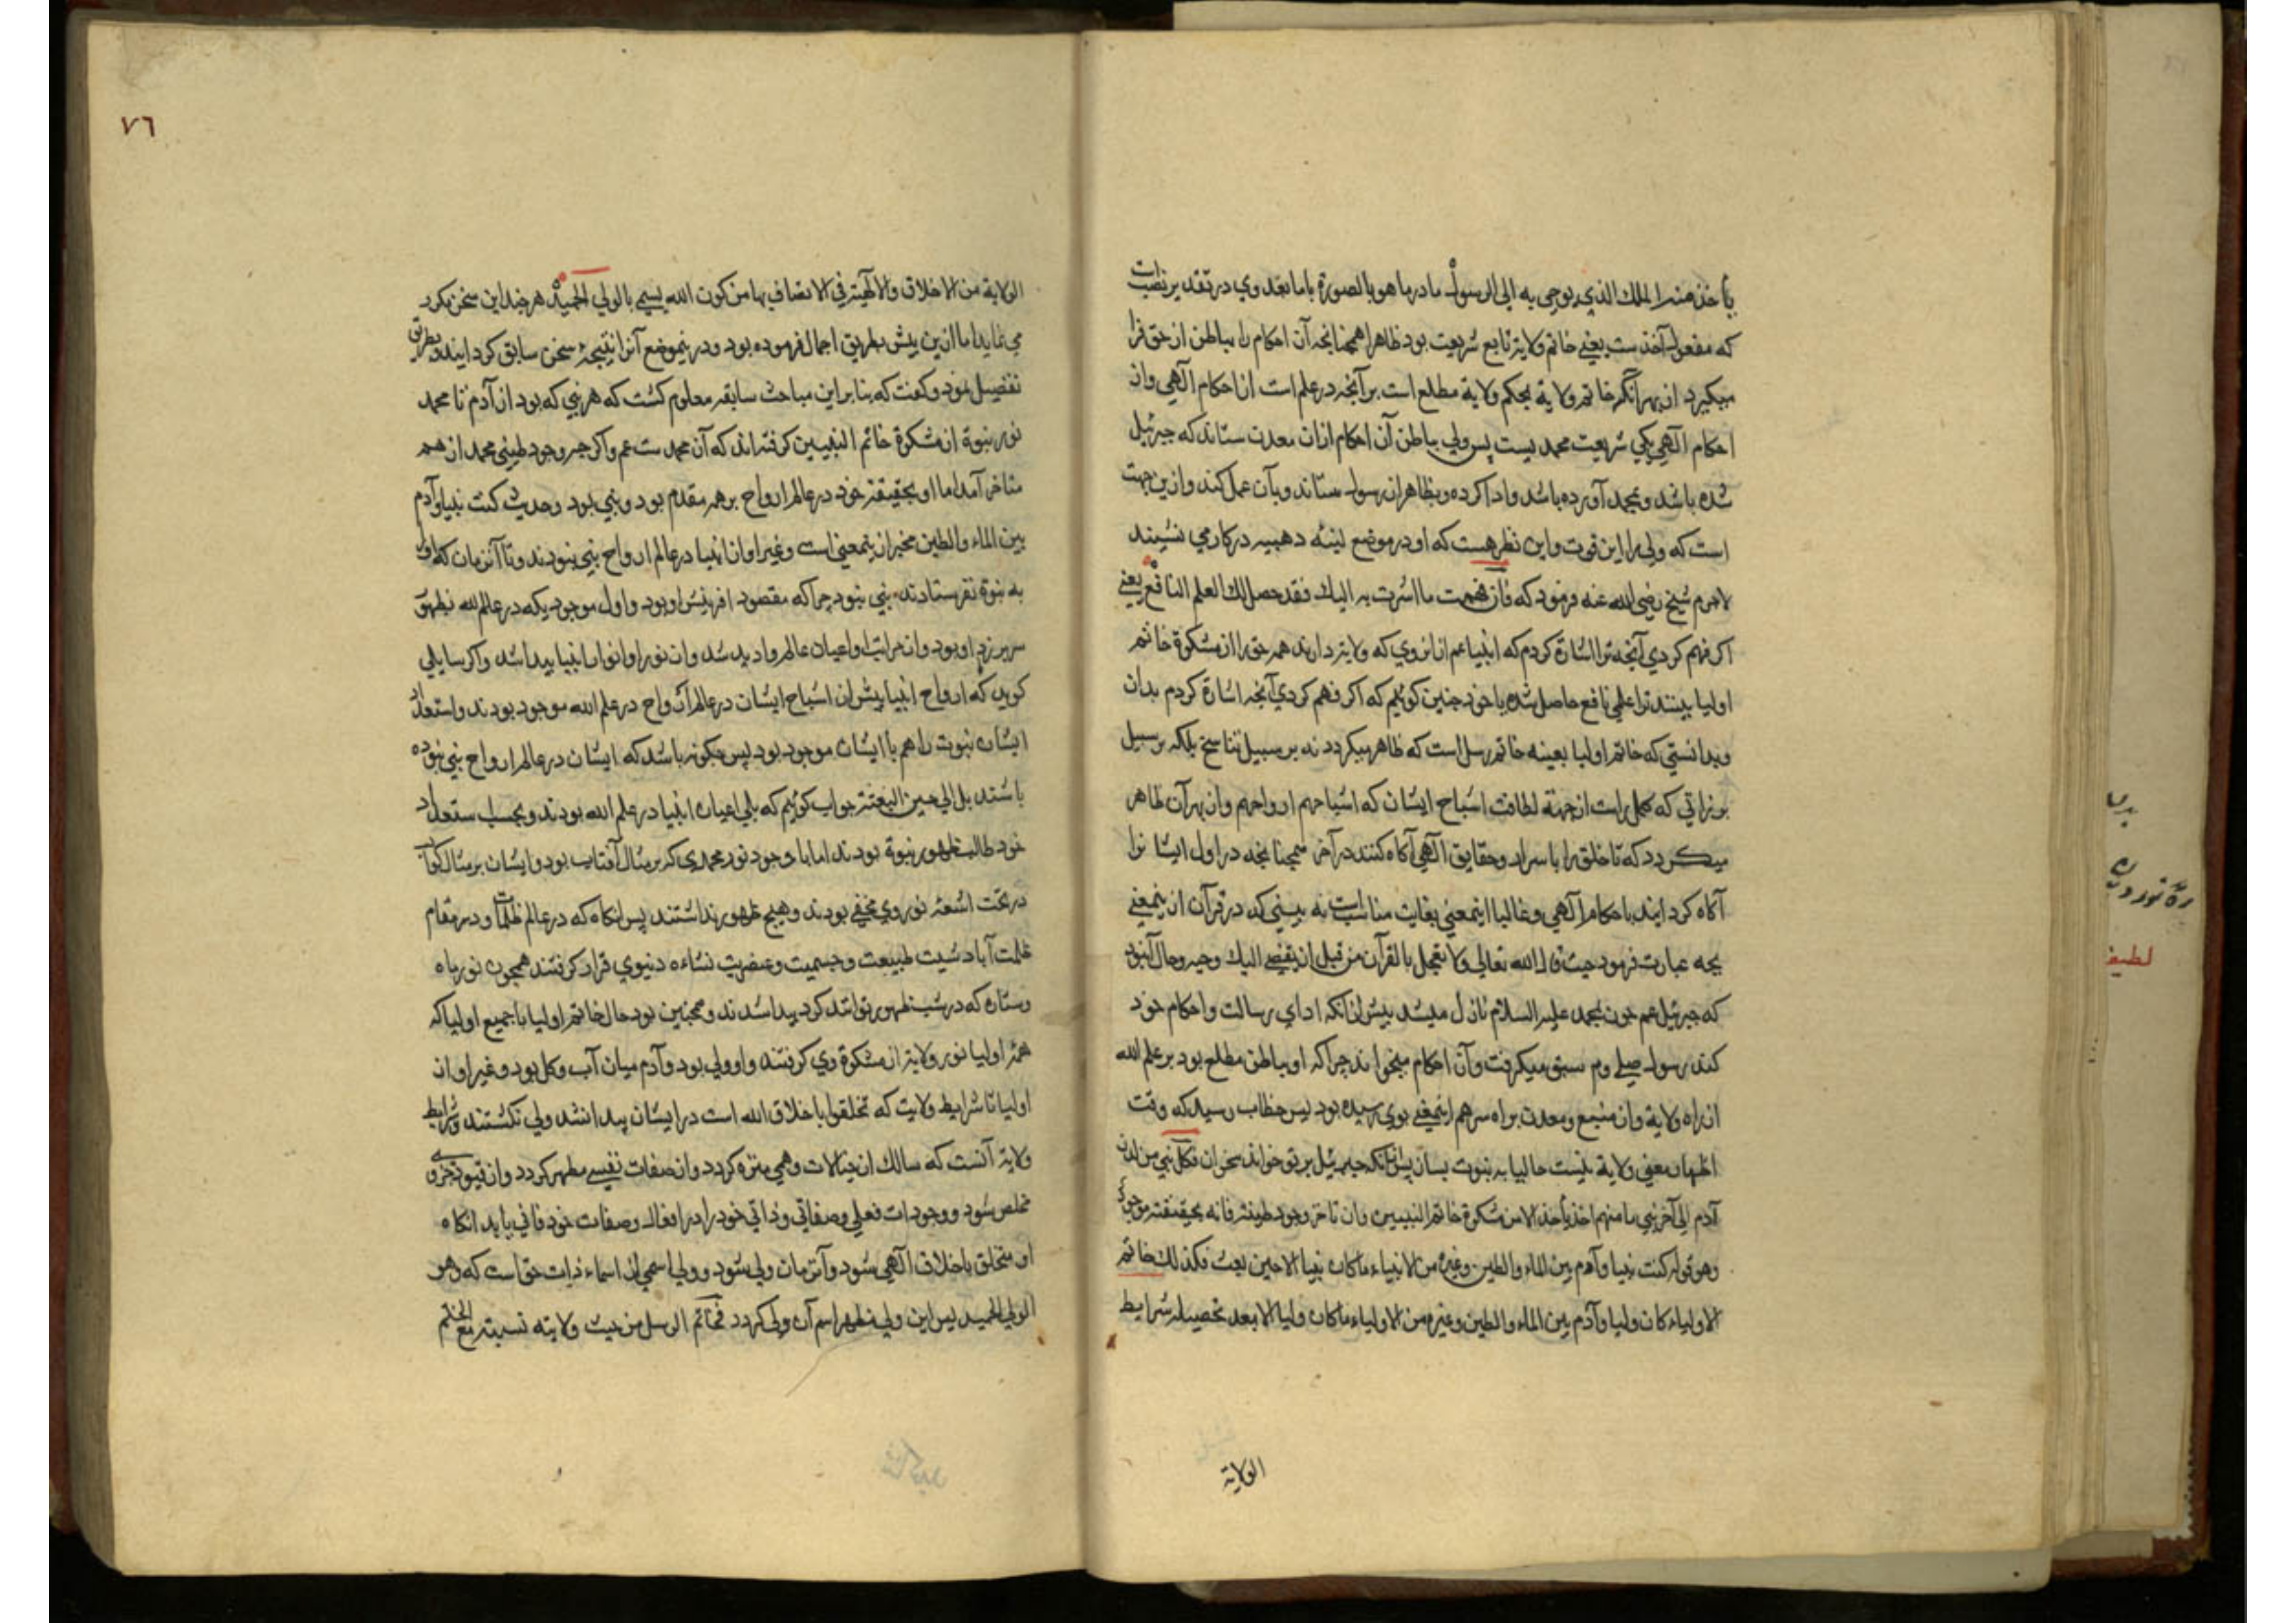 يأخذ منه الملك الذي يوحي به الى الرسول ما درما هو بالصورة باما بعد وي در تقدير نصبت
كه مفعول آخذست يعني خاتم ولايت تابع شريعت بود ظاهرا همچنانچه آن احكام را بباطن از حق فرا
ميگيرد از بهر آنكه خاتم ولاية بحكم ولاية مطلع است بر آنچه در علم است از احكام الهي وان
احكام الهي يكي شريعت محمديست پس ولي بباطن آن احكام ازان معدن ستاند كه جبرئيل
شده باشد وبمحمد آورده باشد وادا كرده وبظاهر از رسول ستاند وبآن عمل كند وازين جهت
است كه ولي را اين قوت واين نظر هست كه او در موضع لبنه ذهبيه در كار مي نشيند
لاجرم شيخ رضي الله عنه فرمود كه فان فهمت ما اشرت به اليك فقد حصل لك العلم النافع يعني
اكر فهم كردي آنچه ترا اشارة كردم كه انبيا عم از ان روي كه ولايت دارند همه حق را از مشكوة خاتم
اوليا بينند ترا علمي نافع حاصل شده يا خود چنين كوئيم كه اكر فهم كردي آنچه اشارة كردم بدان
وبدانستي كه خاتم اوليا بعينه خاتم رسل است كه ظاهر ميكردد نه بر سبيل تناسخ بلكه بر سبيل
بروزاتي كه كمل راست از جهة لطافت اشباح ايشان كه اشباحهم ارواحهم وان بهر آن ظاهر
ميكردد كه تا خلق را باسرار وحقايق الهي آكاه كنند در آخر همچنانچه در اول ايشانرا
آكاه كردايند باحكام الهي وغالبا اينمعني بغايت مناسب است نه بيني كه در قرآن از ينمعني
بچه عبارت فرمود حيث قال الله تعالي ولا تعجل بالقرآن من قبل ان يقضي اليك وحيه وحال آنبود
كه جبرئيل عم چون بمحمد عليه السلام نازل ميشد پيش از انكه اداي رسالت واحكام خود
كند رسول صلعم سبق ميكرفت وآن احكام ميخواند چرا كه او بباطن مطلع بود بر علم الله
از راه ولاية وان منبع ومعدن براه سر هم اينمعني بوي رسيده بود پس خطاب رسيد كه وقت
اظهار معني ولاية نيست حاليا به نبوت بسان پيش از انكه جبرئيل بر تو خواند مخوان فكل نبي من لدن
آدم الي آخر نبي ما منهم احد يأخذ الا من مشكوة خاتم النبيين وان تأخر وجود طينته فانه بحقيقته موجود
وهو قوله كنت نبيا وآدم بين الماء والطين وغيره من الانبياء ما كان نبيا الا حين بعث فكذلك خاتم
الاولياء كان وليا وآدم بين الماء والطين وغيره من الاولياء ما كان وليا الا بعد تحصيله شرايط
الولاية
٧٦
الولاية من الاخلاق والالهية في الاتصاف بها من كون الله يسمي بالولي الحميد هر چند اين سخن مكرر
مي نمايد اما ازين پيش بطريق اجمال فرموده بود ودرينموضع آنرا نتيجهٔ سخن سابق كردايند وبطريق
تفصيل نمود وكفت كه بنابر اين مباحث سابقه معلوم كشت كه هر نبي كه بود از آدم تا محمد
نور نبوة از مشكوة خاتم النبيين كرفته اند كه آن محمد ست عم واكر چه وجود طيني محمد از همه
متأخر آمد اما او بحقيقته خود در عالم ارواح بر همه مقدم بود ونبي بود وحديث كنت نبيا وآدم
بين الماء والطين مخبر از ينمعني است وغير او از انبيا در عالم ارواح نبي نبودند وتا آنزمان كه او را
به نبوة نفرستادند نبي نبود چرا كه مقصود افرينش او بود واول موجوديكه در عالم الله بظهور
سر برزد او بود وان مراتب واعيان عالم واديد شد وان نور او انوار انبيا پيدا شد واكر سايلي
كويد كه ارواح انبيا پيش از اشباح ايشان در عالم ارواح در علم الله موجود بودند واستعداد
ايشان نبوت را هم با ايشان موجود بود پس چكونه باشد كه ايشان در عالم ارواح نبي نبوده
باشند بل الي حين البعثة جواب كوئيم كه بلي اعيان انبيا در علم الله بودند وبحسب استعداد
خود طالب ظهور نبوة بودند اما با وجود نور محمدي كه بر مثال آفتاب بود وايشان بر مثال كواكب
در تحت اشعهٔ نور وي مخفي بودند وهيچ ظهور نداشتند پس انكاه كه در عالم ظلمات ودر مقام
ظلمت آباد شيت طبيعت وجسميت وعنصريت نشاءه دنيوي قرار كرفتند همچون نور ماه
وستاره كه در شب ظهور تواند كرد پيدا شدند وهمچنين بود حال خاتم اوليا با جميع اوليا كه
همهٔ اوليا نور ولايت از مشكوة وي كرفتند واو ولي بود وآدم ميان آب وكل بود وغير او از
اوليا تا شرايط ولايت كه تخلقوا باخلاق الله است در ايشان پيدا نشد ولي نكشتند وشرايط
ولايت آنست كه سالك از خيالات وهمي منزه كردد وان صفات نفسي مطهر كردد وان قيود جزوي
مخلص شود ووجودات فعلي وصفاتي وذاتي خود را در افعال وصفات خود فاني يابد انكاه
او متخلق باخلاق الهي شود وآنزمان ولي شود وولي اسمي از اسماء ذات حق است كه وهو
الولي الحميد پس اين ولي مظهر اسم آن ولي كردد فخاتم الرسل من حيث ولايته نسبته مع الخاتم
لطيفه